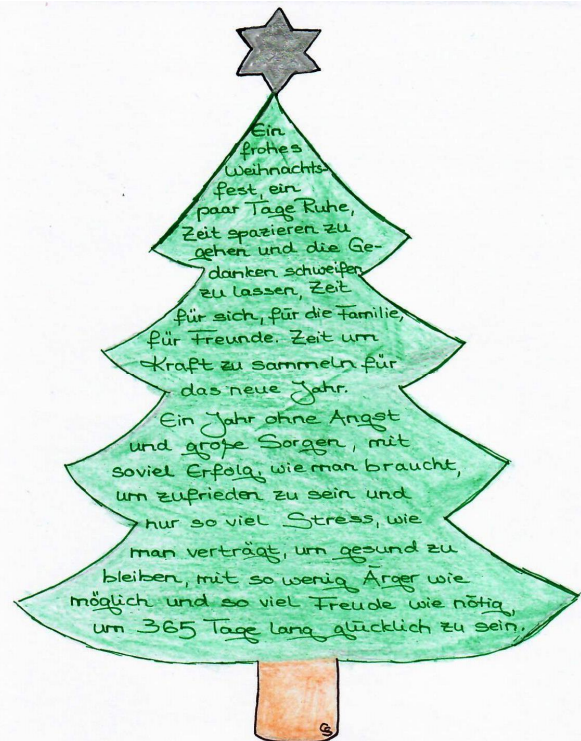 Ein
frohes
Weihnachts-
fest, ein
paar Tage Ruhe,
Zeit spazieren zu
gehen und die Ge-
danken schweifen
zu lassen, Zeit
für sich, für die Familie,
für Freunde. Zeit um
Kraft zu sammeln für
das neue Jahr.
Ein Jahr ohne Angst
und große Sorgen, mit
soviel Erfolg, wie man braucht,
um zufrieden zu sein und
nur so viel Stress, wie
man verträgt, um gesund zu
bleiben, mit so wenig Ärger wie
möglich und so viel Freude wie nötig,
um 365 Tage lang glücklich zu sein.